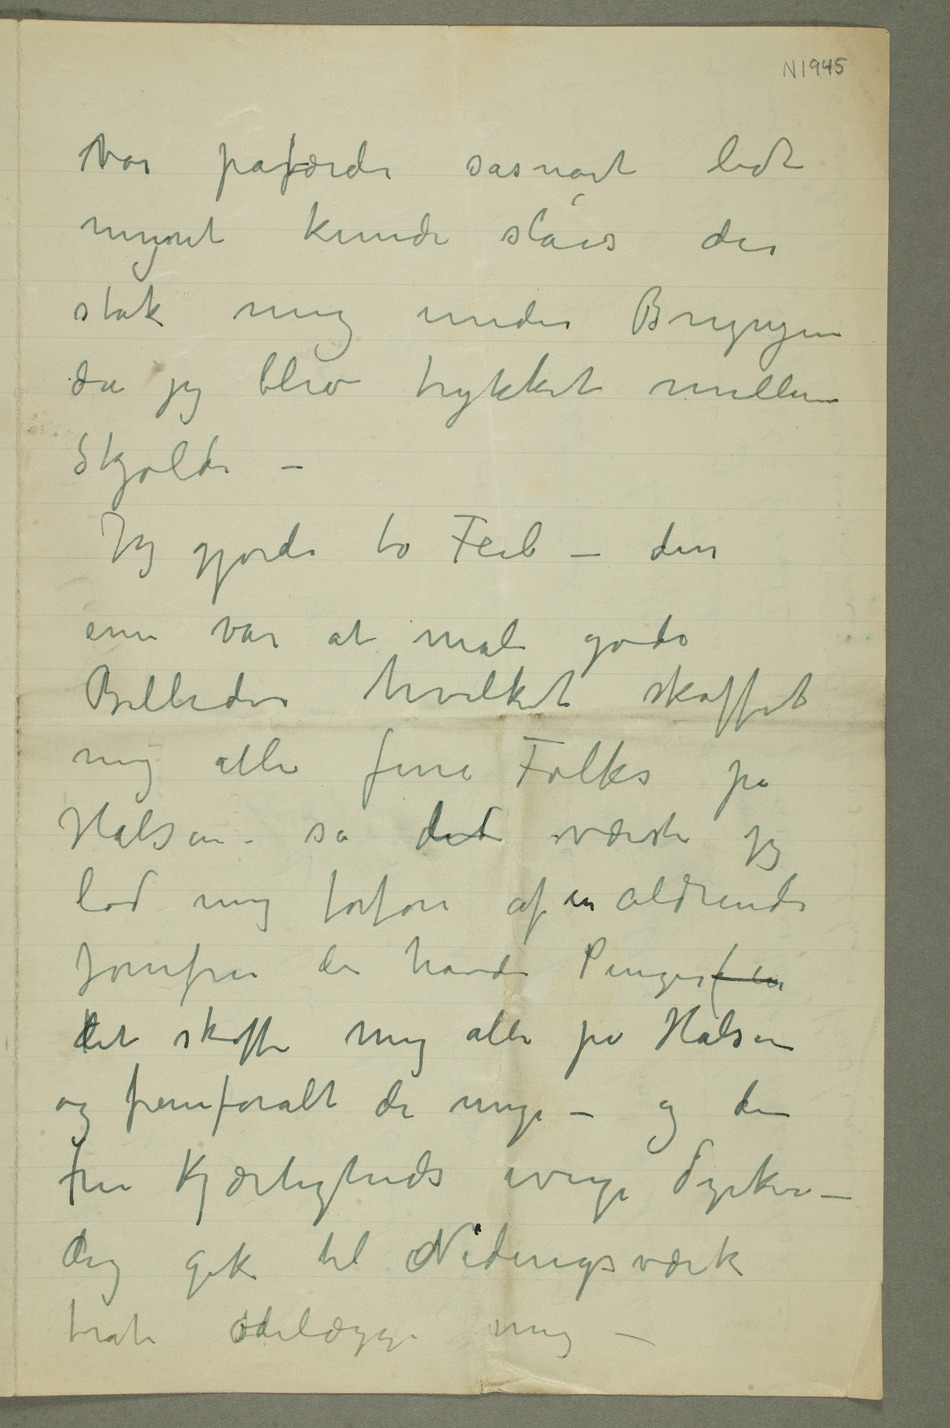 N1945
var påfærde såsnart lidt
mynt kunde slåes der
stak mig under Brynjen
da jeg blev trykket mellem
Skjolde –
Jeg gjorde to Feil – den
ene var at male gode
Billeder hvilket skaffet
mig alle fine Folks på
Halsen – så det værste jeg
lod mig forføre af en aldrende
Jomfru der havde Penger
det skaffe mig alle på Halsen
og fremforalt de unge – og den
frie Kjærligheds ivrige Dyrkere –
gik til Nidingsværk
ødelægge mig –